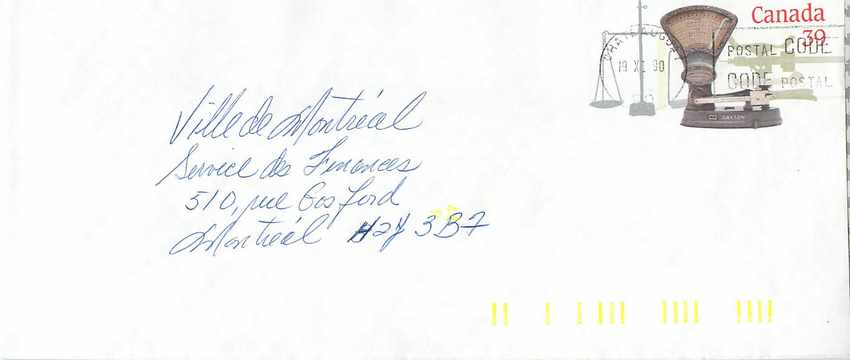 Canada
39
CHATEAUGUAY
19 XI 90
POSTAL CODE
CODE POSTAL
Ville de Montréal
Service des Finances
510, rue Gosford
Montréal H2Y 3B7